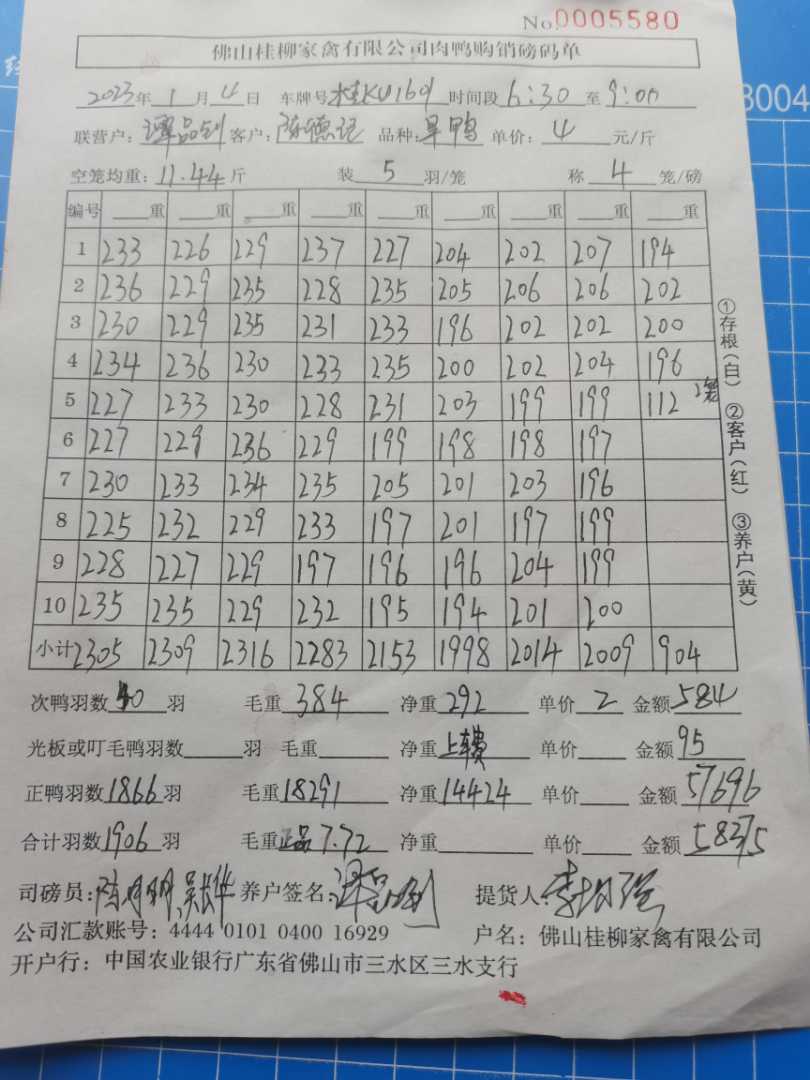 No.0005580
佛山桂柳家禽有限公司肉鸭购销磅码单
2023年 1 月 4 日 车牌号 桂KU1601 时间段 6:30 至 9:00
联营户: 客户: 陈德记 品种: 旱鸭 单价: 4 元/斤
空笼均重: 11.44 斤 装 5 羽/笼 称 4 笼/磅
编号 重 重 重 重 重 重 重 重 重
1 233 226 229 237 227 204 202 207 194
2 236 229 235 228 235 205 206 206 202
3 230 229 235 231 233 196 202 202 200
4 234 236 230 233 235 200 202 204 196
5 227 233 230 228 231 203 199 199 112 2笼
6 227 229 236 229 199 198 198 197
7 230 233 234 235 205 201 203 196
8 225 232 229 233 197 201 197 199
9 228 227 229 197 196 196 204 199
10 235 235 229 232 195 194 201 200
小计 2305 2309 2316 2283 2153 1998 2014 2009 904
次鸭羽数 40 羽 毛重 384 净重 292 单价 2 金额 584
光板或叮毛鸭羽数 羽 毛重 净重 上车费 单价 金额 95
正鸭羽数 1866 羽 毛重 18291 净重 14424 单价 金额 57696
合计羽数 1906 羽 毛重 正品 7.72 净重 单价 金额 58375
司磅员: 养户签名: 提货人:
公司汇款账号: 4444 0101 0400 16929 户名: 佛山桂柳家禽有限公司
开户行: 中国农业银行广东省佛山市三水区三水支行
①存根(白) ②客户(红) ③养户(黄)
8004